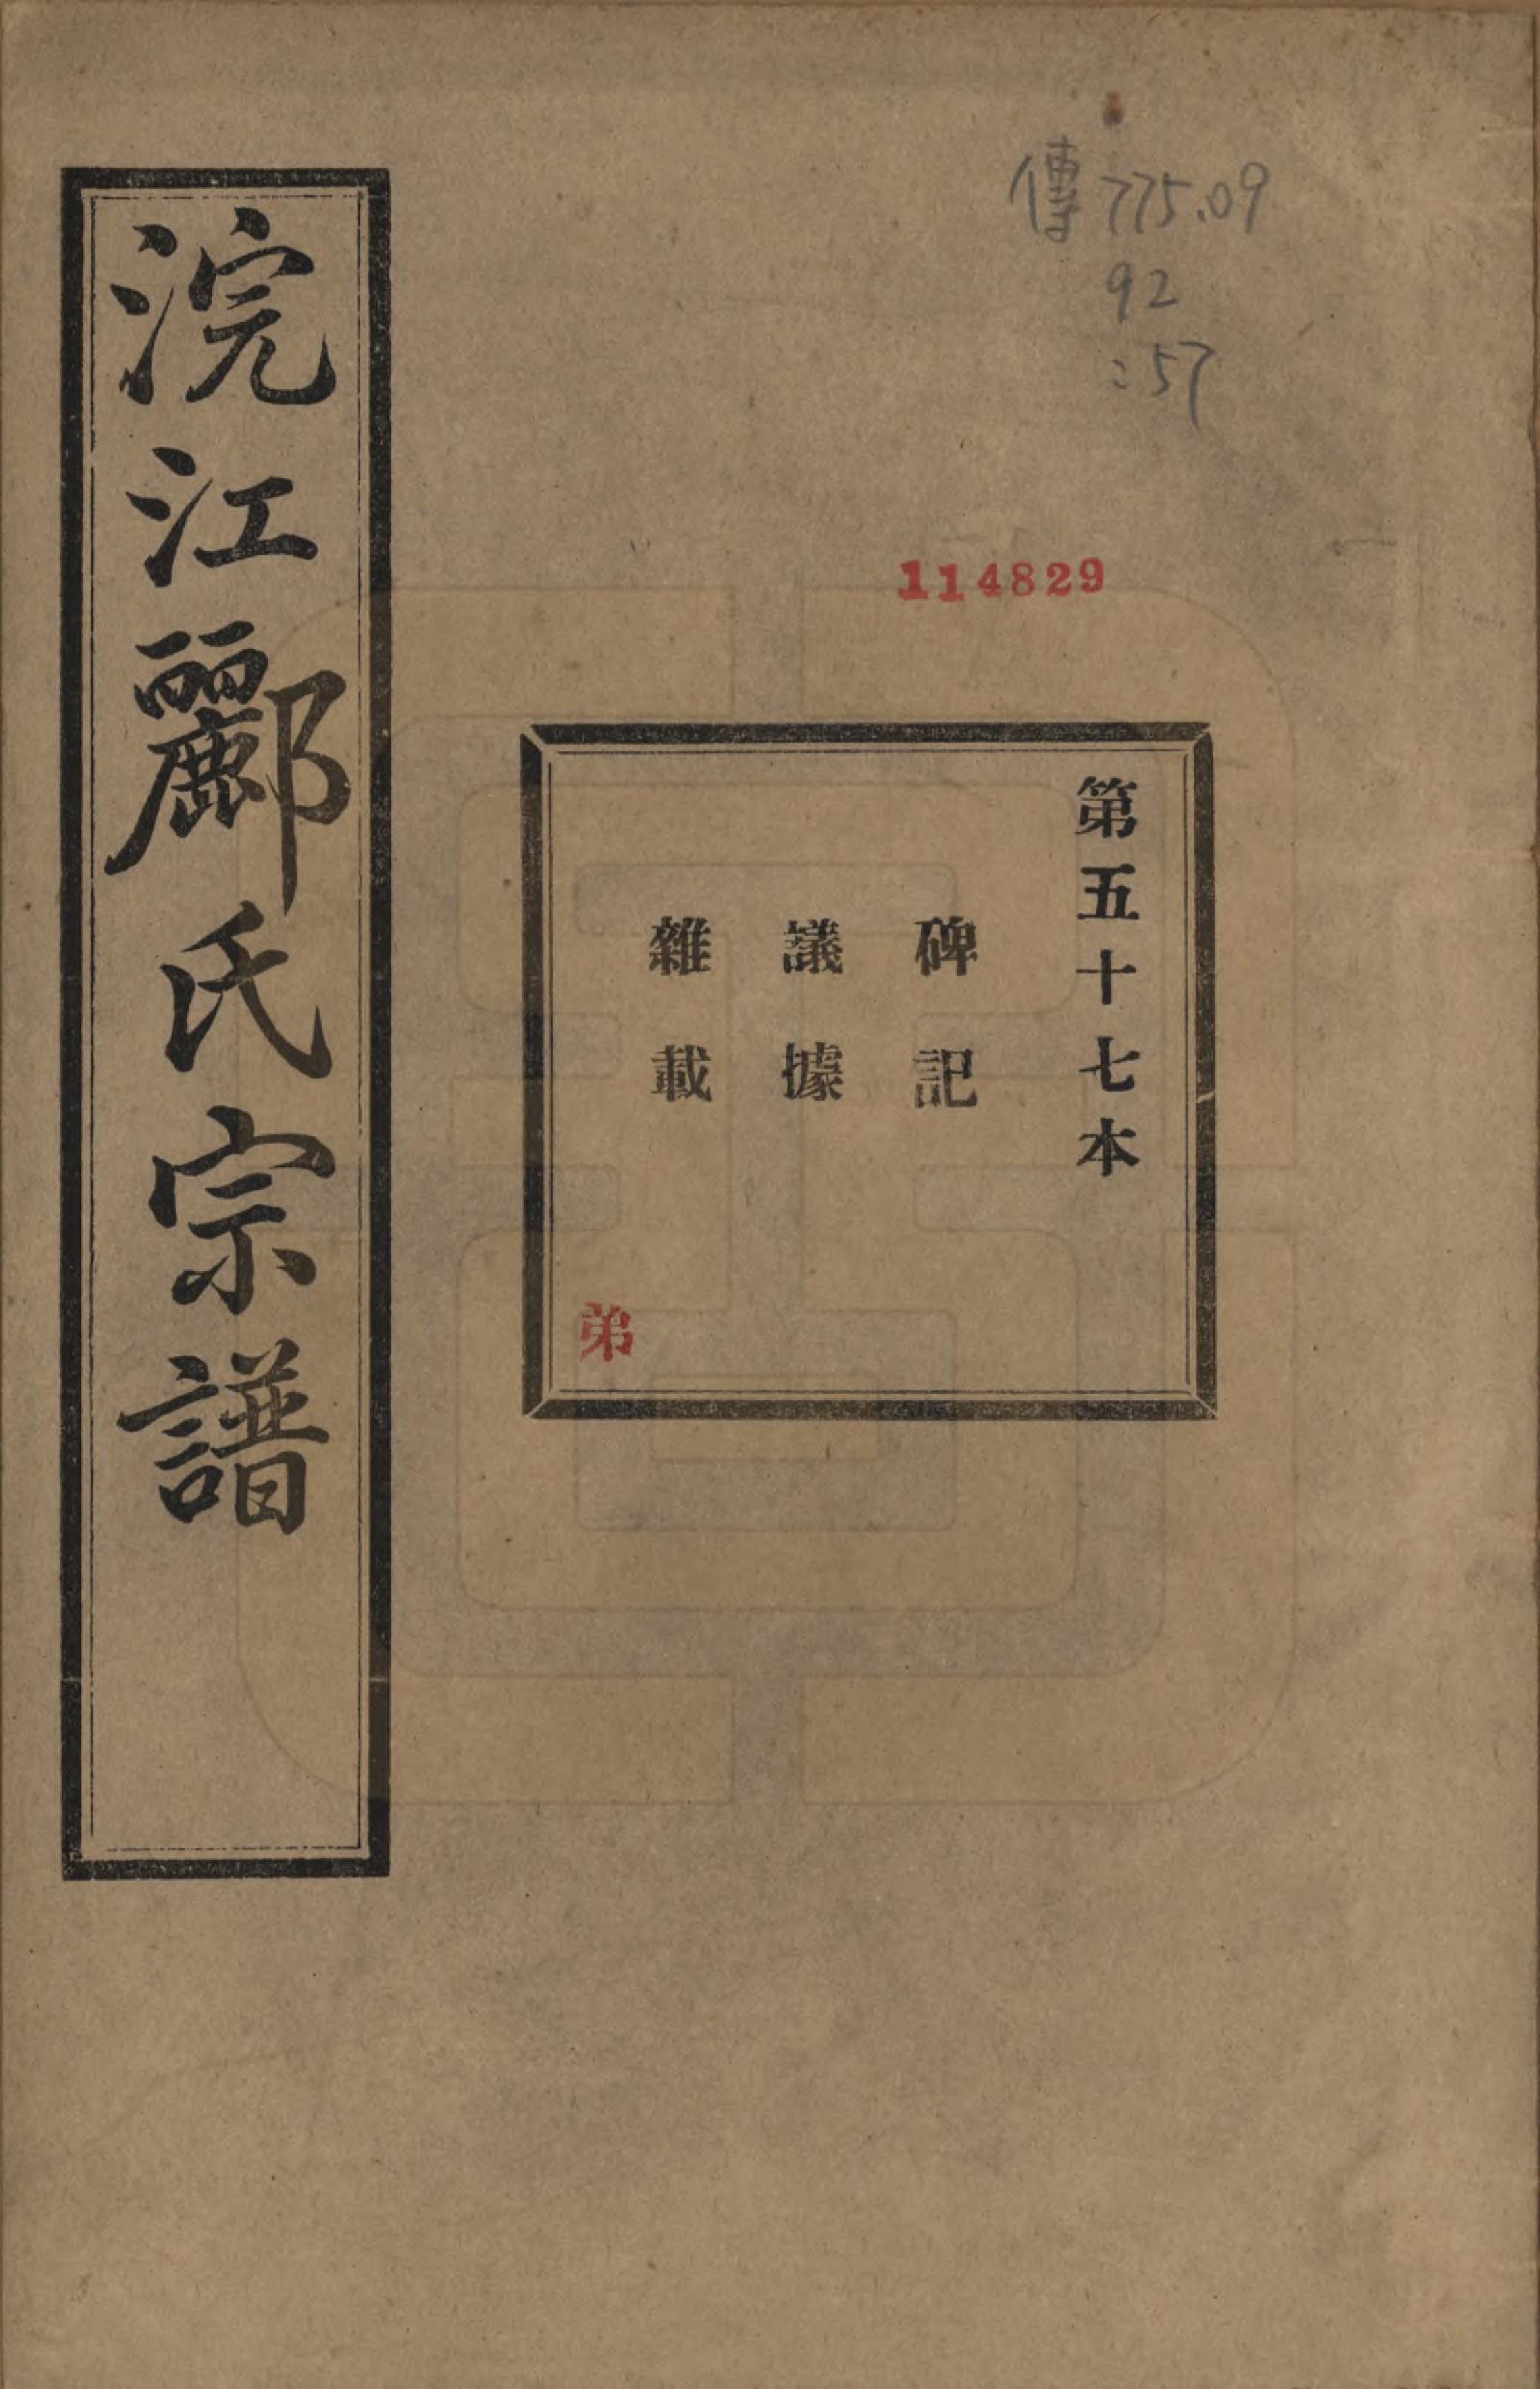 傳775.09
92
:57
114829
第五十七本
碑記
議據
雜載
弟
浣江酈氏宗譜